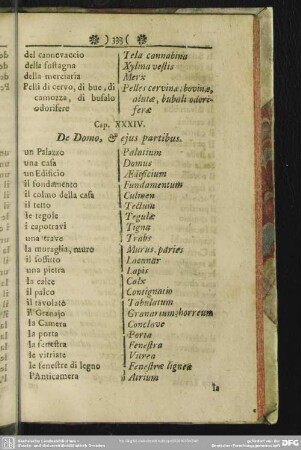 ) 333 (
del cannevaccio Tela cannabina
della fustagna Xylina vestis
della merciaria Merx
Pelli di cervo, di bue, di camozza, di bufalo odorifere Pelles cervinæ, bovinæ, alutæ, bubali odoriferæ
Cap. XXXIV.
De Domo, & ejus partibus.
un Palazzo Palatium
una casa Domus
un Edificio Ædificium
il fondamento Fundamentum
il colmo della casa Culmen
il tetto Tectum
le tegole Tegulæ
i capotravi Tigna
una trave Trabs
la muraglia, muro Murus, paries
il soffitto Laquear
una pietra Lapis
la calce Calx
il palco Contignatio
il tavolato Tabulatum
il Granajo Granarium, horreum
la Camera Conclave
la porta Porta
la fenestra Fenestra
le vitriate Vitrea
le fenestre di legno Fenestræ ligneæ
l'Anticamera Atrium
la